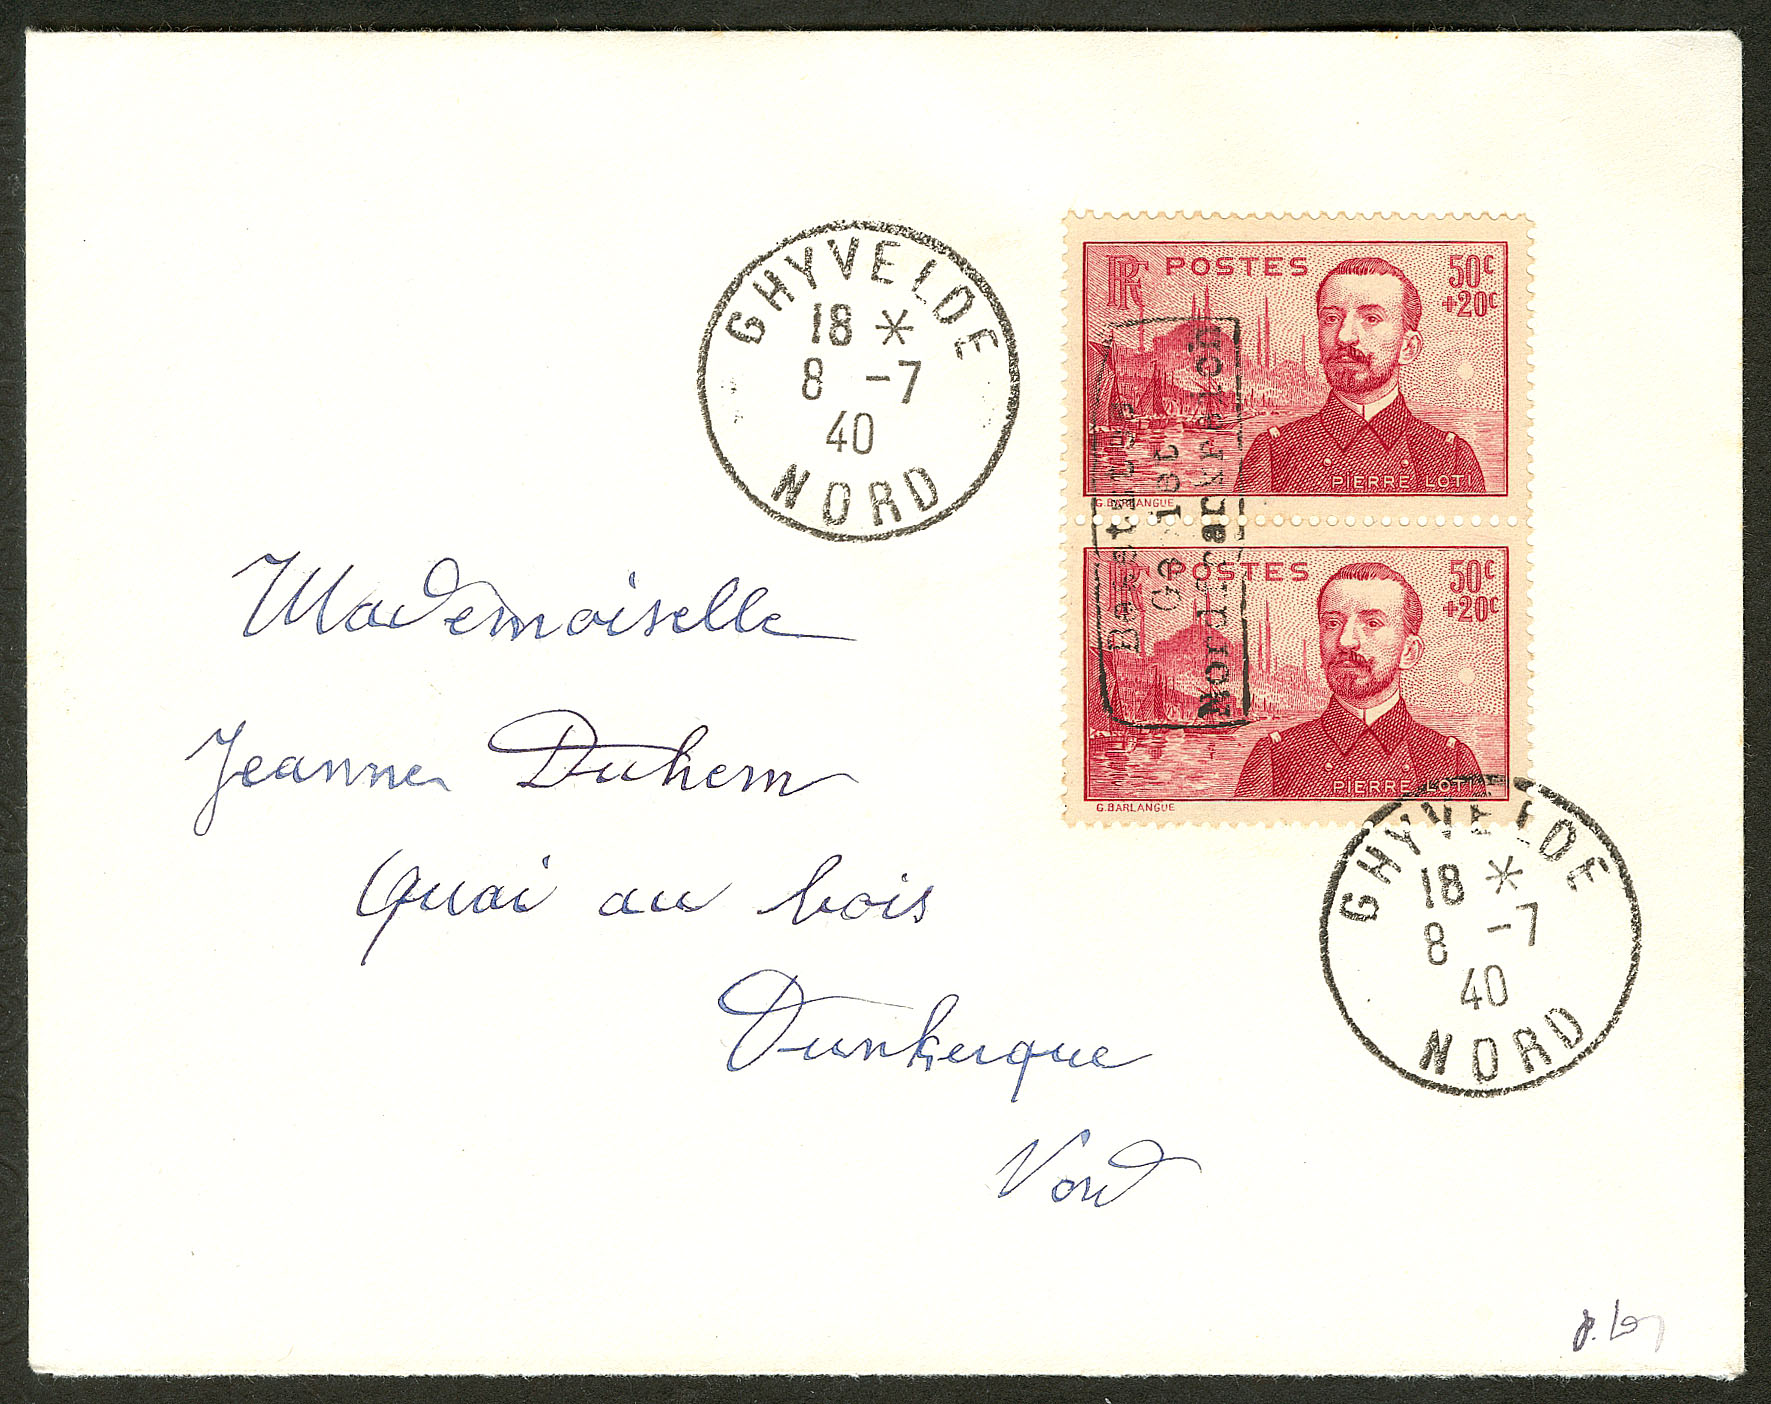 GHYVELDE
18 *
8 -7
40
NORD
RF POSTES 50c
+20c
PIERRE LOTI
G.BARLANGUE
Besetztes
Gebiet
Nordfrankreich
RF POSTES 50c
+20c
PIERRE LOTI
G.BARLANGUE
GHYVELDE
18 *
8 -7
40
NORD
Mademoiselle
Jeanne Duhem
Quai au bois
Dunkerque
Nord